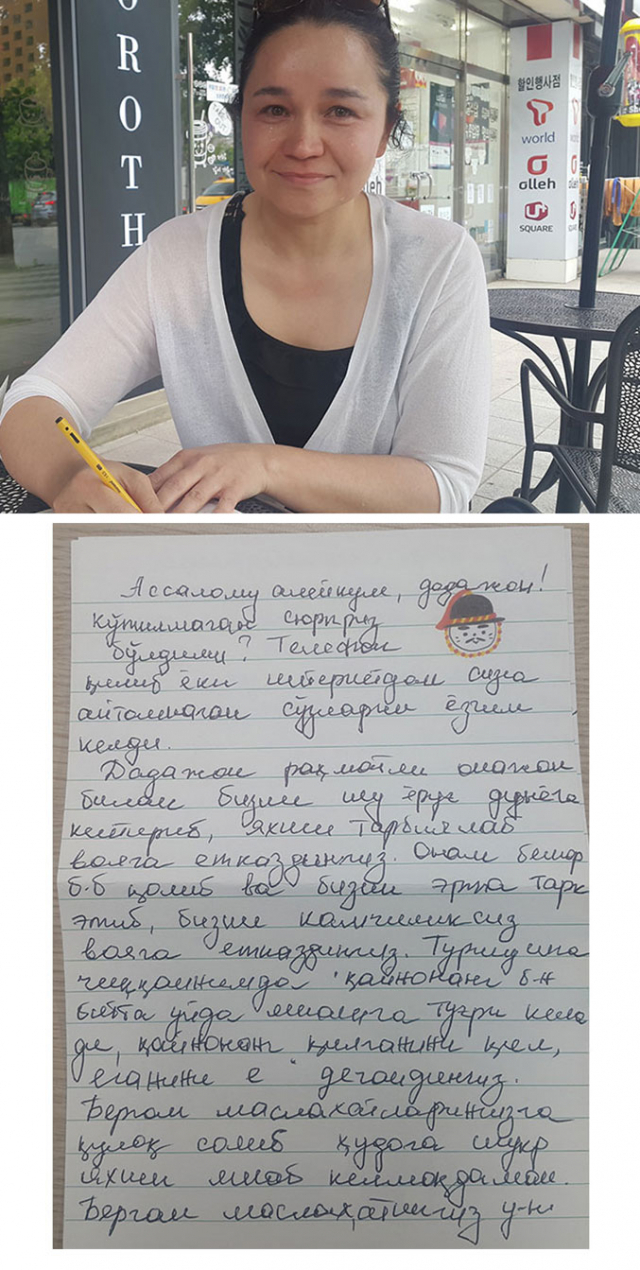 OROTH
할인행사점
T
world
olleh
U+
SQUARE
olleh
Ассалому алейкум, дадажон!
Кутилмаган сюрприз
бўлдими? Телефон
қилиб ёки интернетдан сизга
айтолмаган сўзларни ёзгим
келди.
Дадажон раҳматли онажон
билан бизни шу ёруғ дунёга
келтериб, яхши тарбиялаб
вояга етказдингиз. Онам бемор
б-б қолиб ва бизни эрта тарк
этиб, бизни камчиликсиз
вояга етказдингиз. Турмушга
чиққанимда "қайнонанг б-н
битта уйда яшашга тўғри кела
ди, қайнонанг қилганини қил,
еганини е" дегандингиз.
Берган маслаҳатларингизга
қулоқ солиб худога шукр
яхши яшаб келмоқдаман.
Берган маслаҳатингиз у-н